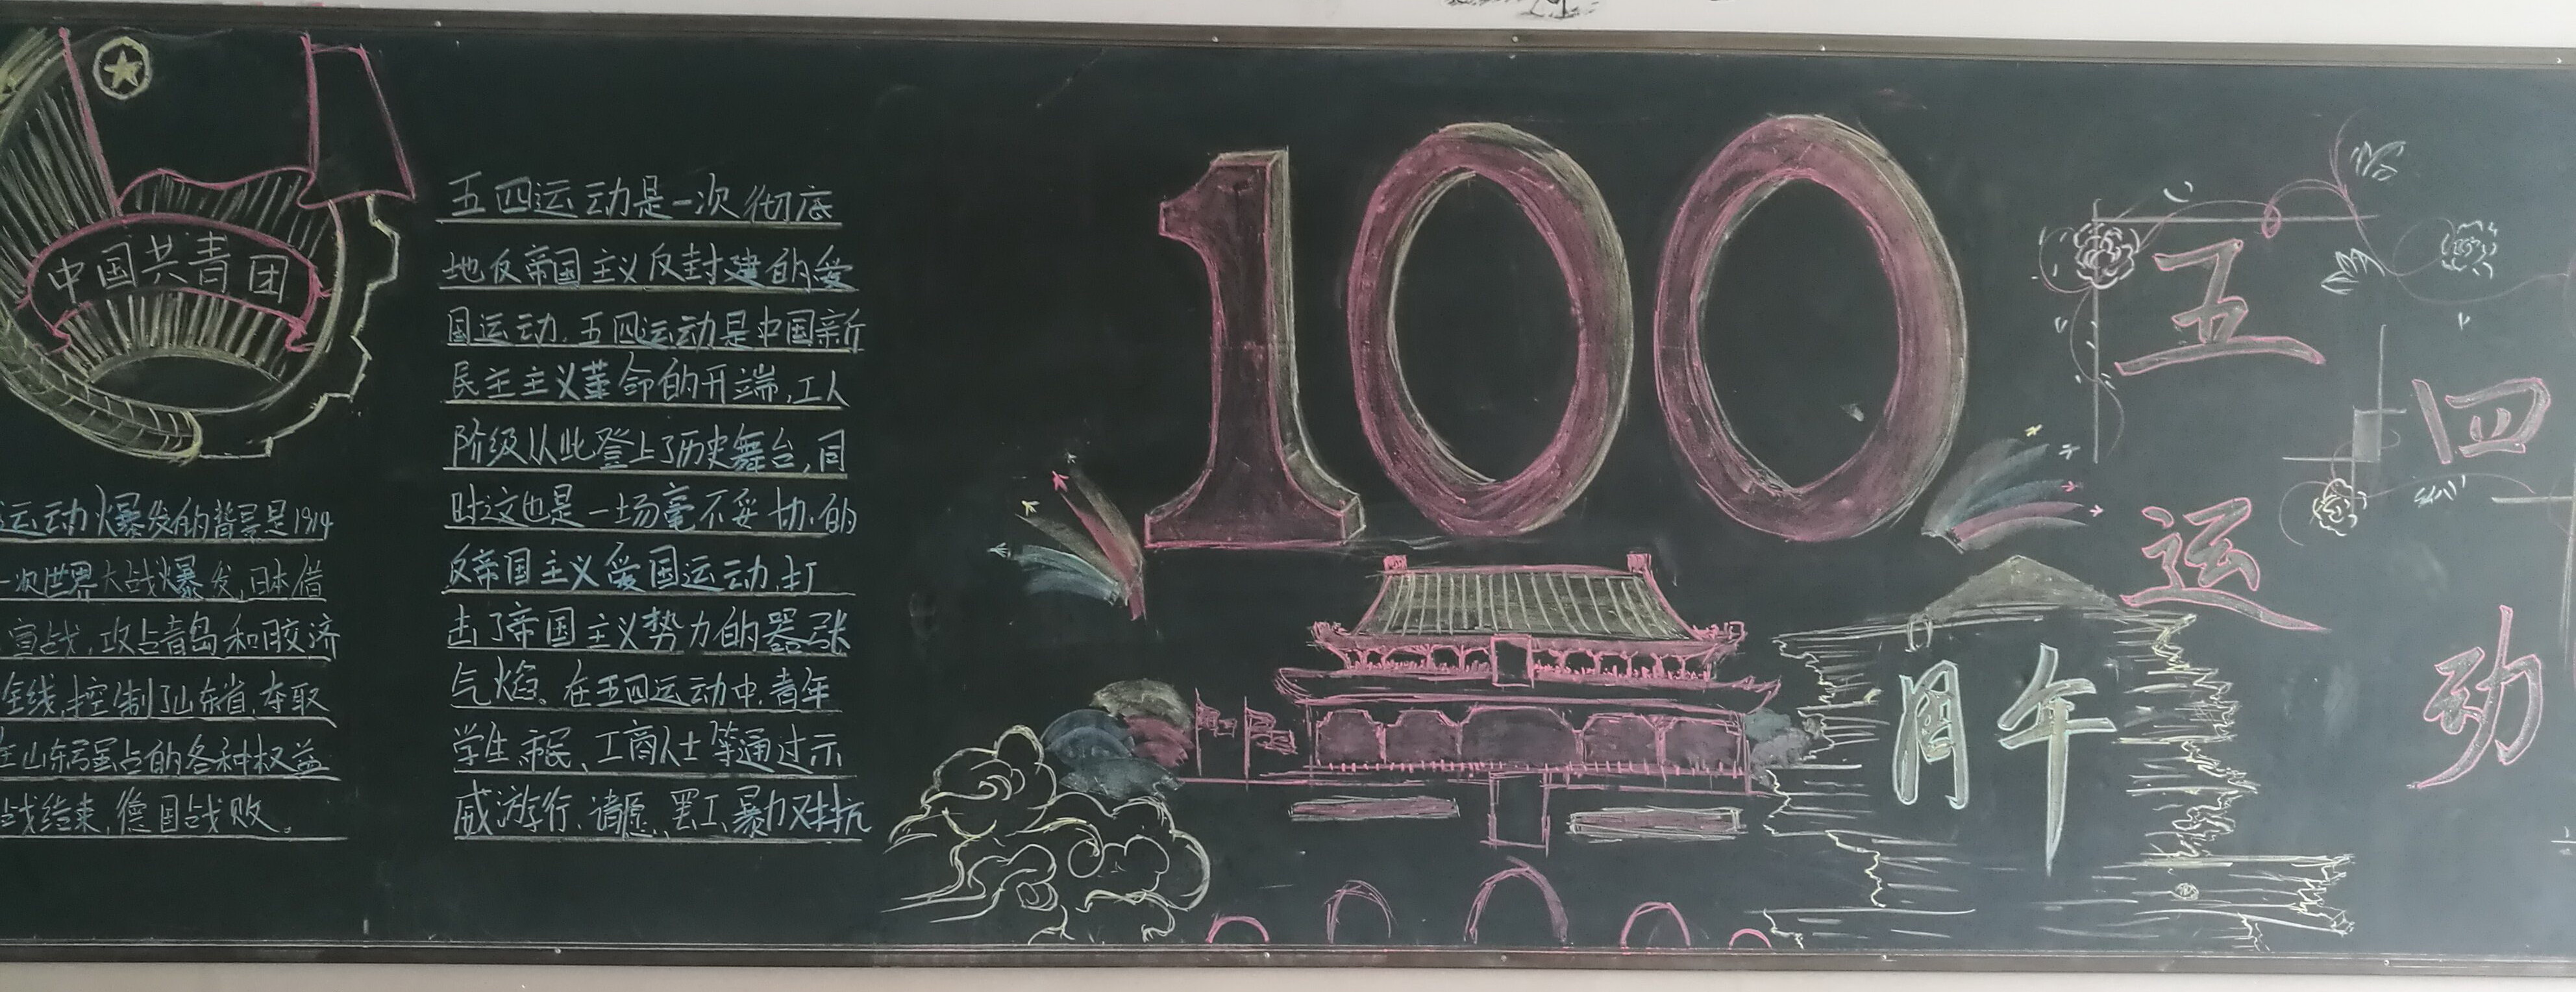 中国共青团
运动爆发的背景是1914
一次世界大战爆发,日本借
宣战,攻占青岛和胶济
全线,控制了山东省,夺取
在山东强占的各种权益
战结束,德国战败。
五四运动是一次彻底
地反帝国主义反封建的爱
国运动,五四运动是中国新
民主主义革命的开端,工人
阶级从此登上了历史舞台,同
时这也是一场毫不妥协的
反帝国主义爱国运动,打
击了帝国主义势力的嚣张
气焰。在五四运动中,青年
学生、市民、工商人士等通过示
威游行、请愿、罢工、暴力对抗
100
周年
五四
运动